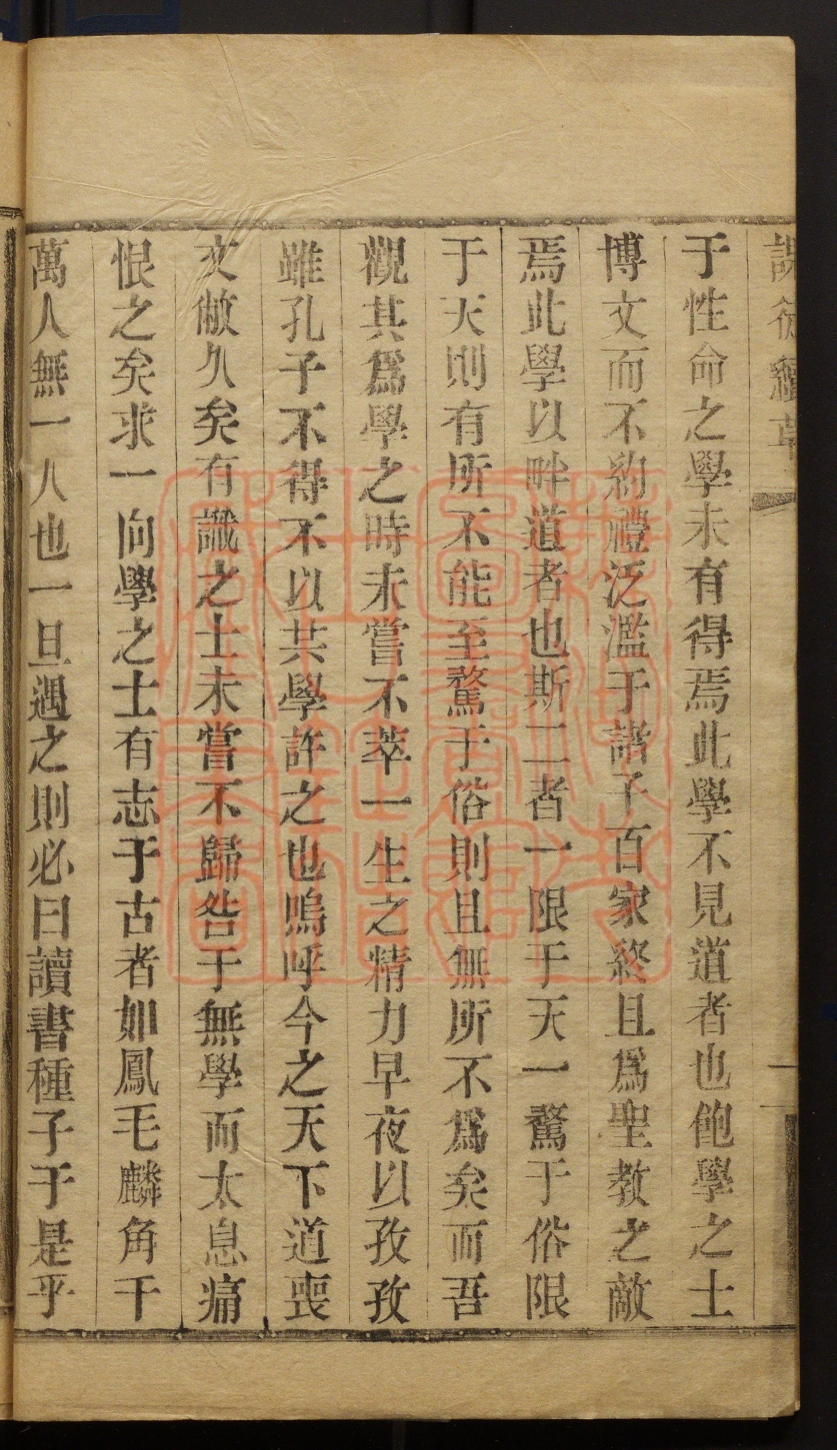 課徒續草
于性命之學未有得焉此學不見道者也飽學之士
博文而不約禮泛濫于諸子百家終且爲聖教之敵
焉此學以畔道者也斯二者一限于天一騖于俗限
于天則有所不能至騖于俗則且無所不爲矣而吾
觀其爲學之時未嘗不萃一生之精力早夜以孜孜
雖孔子不得不以共學許之也嗚呼今之天下道喪
文敝久矣有識之士未嘗不歸咎于無學而太息痛
恨之矣求一向學之士有志于古者如鳳毛麟角千
萬人無一人也一旦遇之則必曰讀書種子于是乎